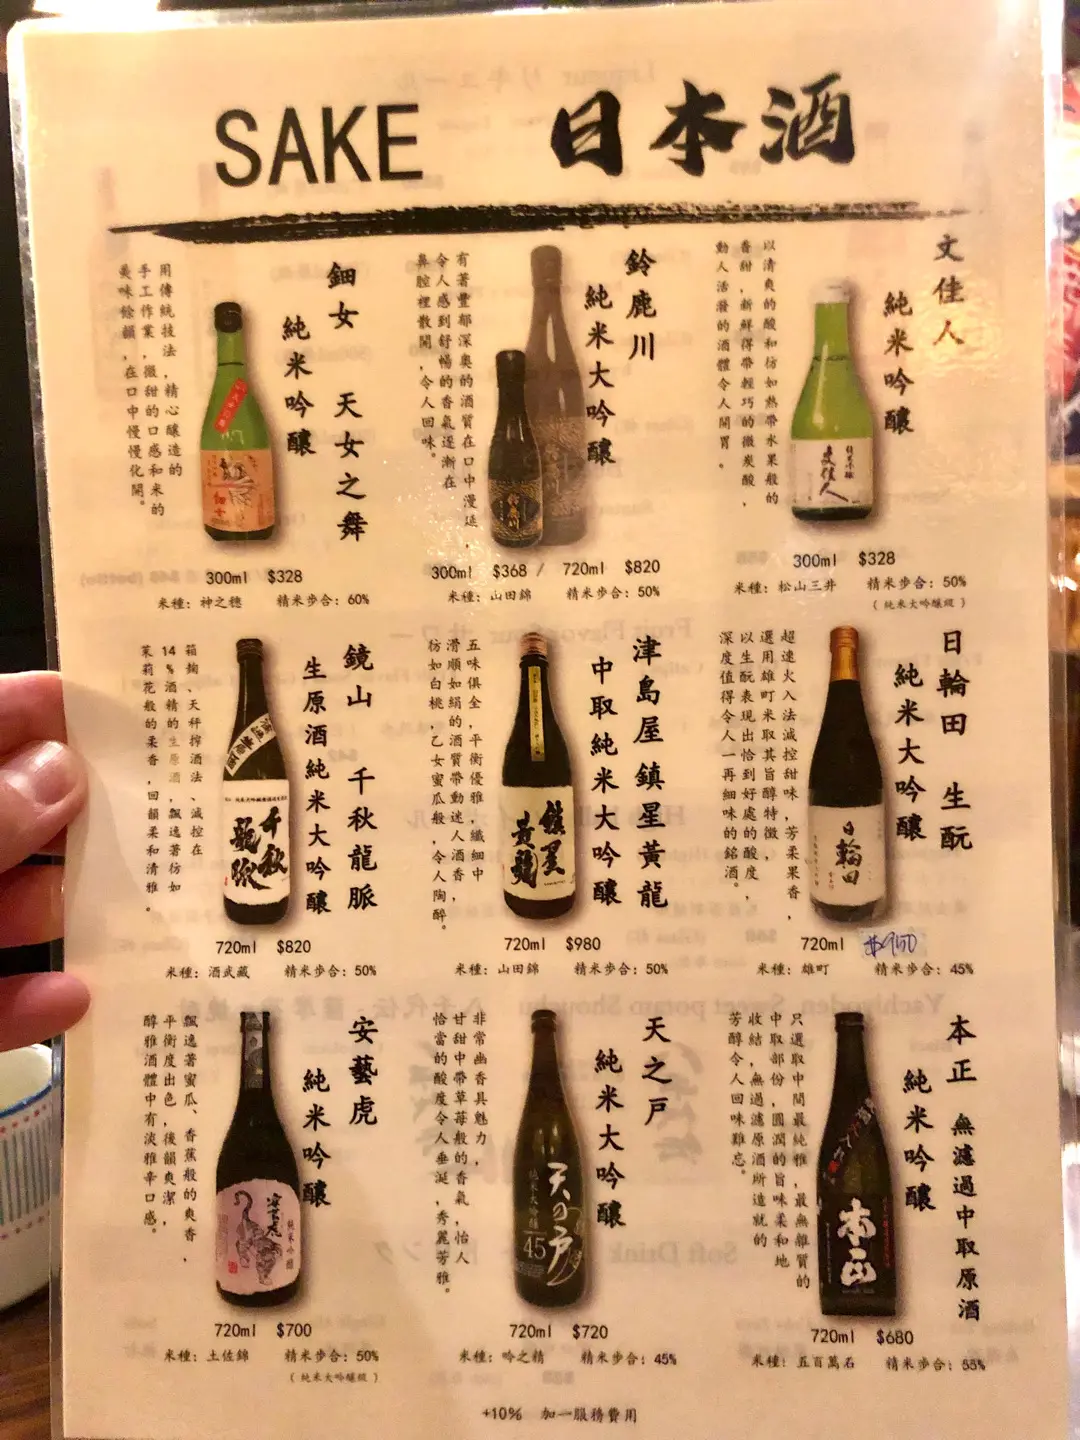 SAKE 日本酒
文佳人
純米吟釀
以清爽的酸和彷如熱帶水果般的
香甜，新鮮得帶輕巧的微炭酸，
動人活潑的酒體令人開胃。
純米吟釀
文佳人
300ml $328
米種：松山三井 精米步合：50%
（純米大吟釀級）
鈴鹿川
純米大吟釀
有著豐郁深奧的酒質在口中漫延，
令人感到舒暢的香氣逐漸在
鼻腔裡散開，令人回味。
鈴鹿川
300ml $368 / 720ml $820
米種：山田錦 精米步合：50%
鈿女 天女之舞
純米吟釀
用傳統技法，精心釀造的
手工作業，微甜的口感和米的
美味餘韻，在口中慢慢化開。
鈿女
300ml $328
米種：神之穗 精米步合：60%
日輪田 生酛
純米大吟釀
超速火入法減控甜味，芳柔果香，
選用雄町米取其旨醇特徵，
以生酛表現出恰到好處的酸度，
深度值得令人一再細味的銘酒。
日輪田
720ml $950
米種：雄町 精米步合：45%
津島屋 鎮星黃龍
中取純米大吟釀
五味俱全，平衡優雅，纖細中
滑順如絹的酒質帶動迷人酒香，
彷如白桃，乙女蜜瓜般，令人陶醉。
鎮星
黃龍
720ml $980
米種：山田錦 精米步合：50%
鏡山 千秋龍脈
生原酒純米大吟釀
箱麴、天秤搾酒法、減控在
14%酒精的生原酒，飄逸著彷如
茉莉花般的柔香，回韻柔和清雅。
千秋
龍脈
720ml $820
米種：酒武藏 精米步合：50%
本正 無濾過中取原酒
純米吟釀
只選取中間最純雅，最無雜質的
中取部份，圓潤的旨味柔和地
收結，無過濾原酒所造就的
芳醇令人回味難忘。
本正
720ml $680
米種：五百萬石 精米步合：55%
天之戸
純米大吟釀
非常幽香具魅力，
甘甜中帶草莓般的香氣，怡人
恰當的酸度令人垂涎，秀麗芳雅。
天の戸
純米大吟醸
45
720ml $720
米種：吟之精 精米步合：45%
安藝虎
純米吟釀
飄逸著蜜瓜、香蕉般的爽香，
平衡度出色，後韻爽潔，
醇雅酒體中有淡雅辛口感。
安芸虎
純米吟醸
720ml $700
米種：土佐錦 精米步合：50%
（純米大吟釀級）
+10% 加一服務費用